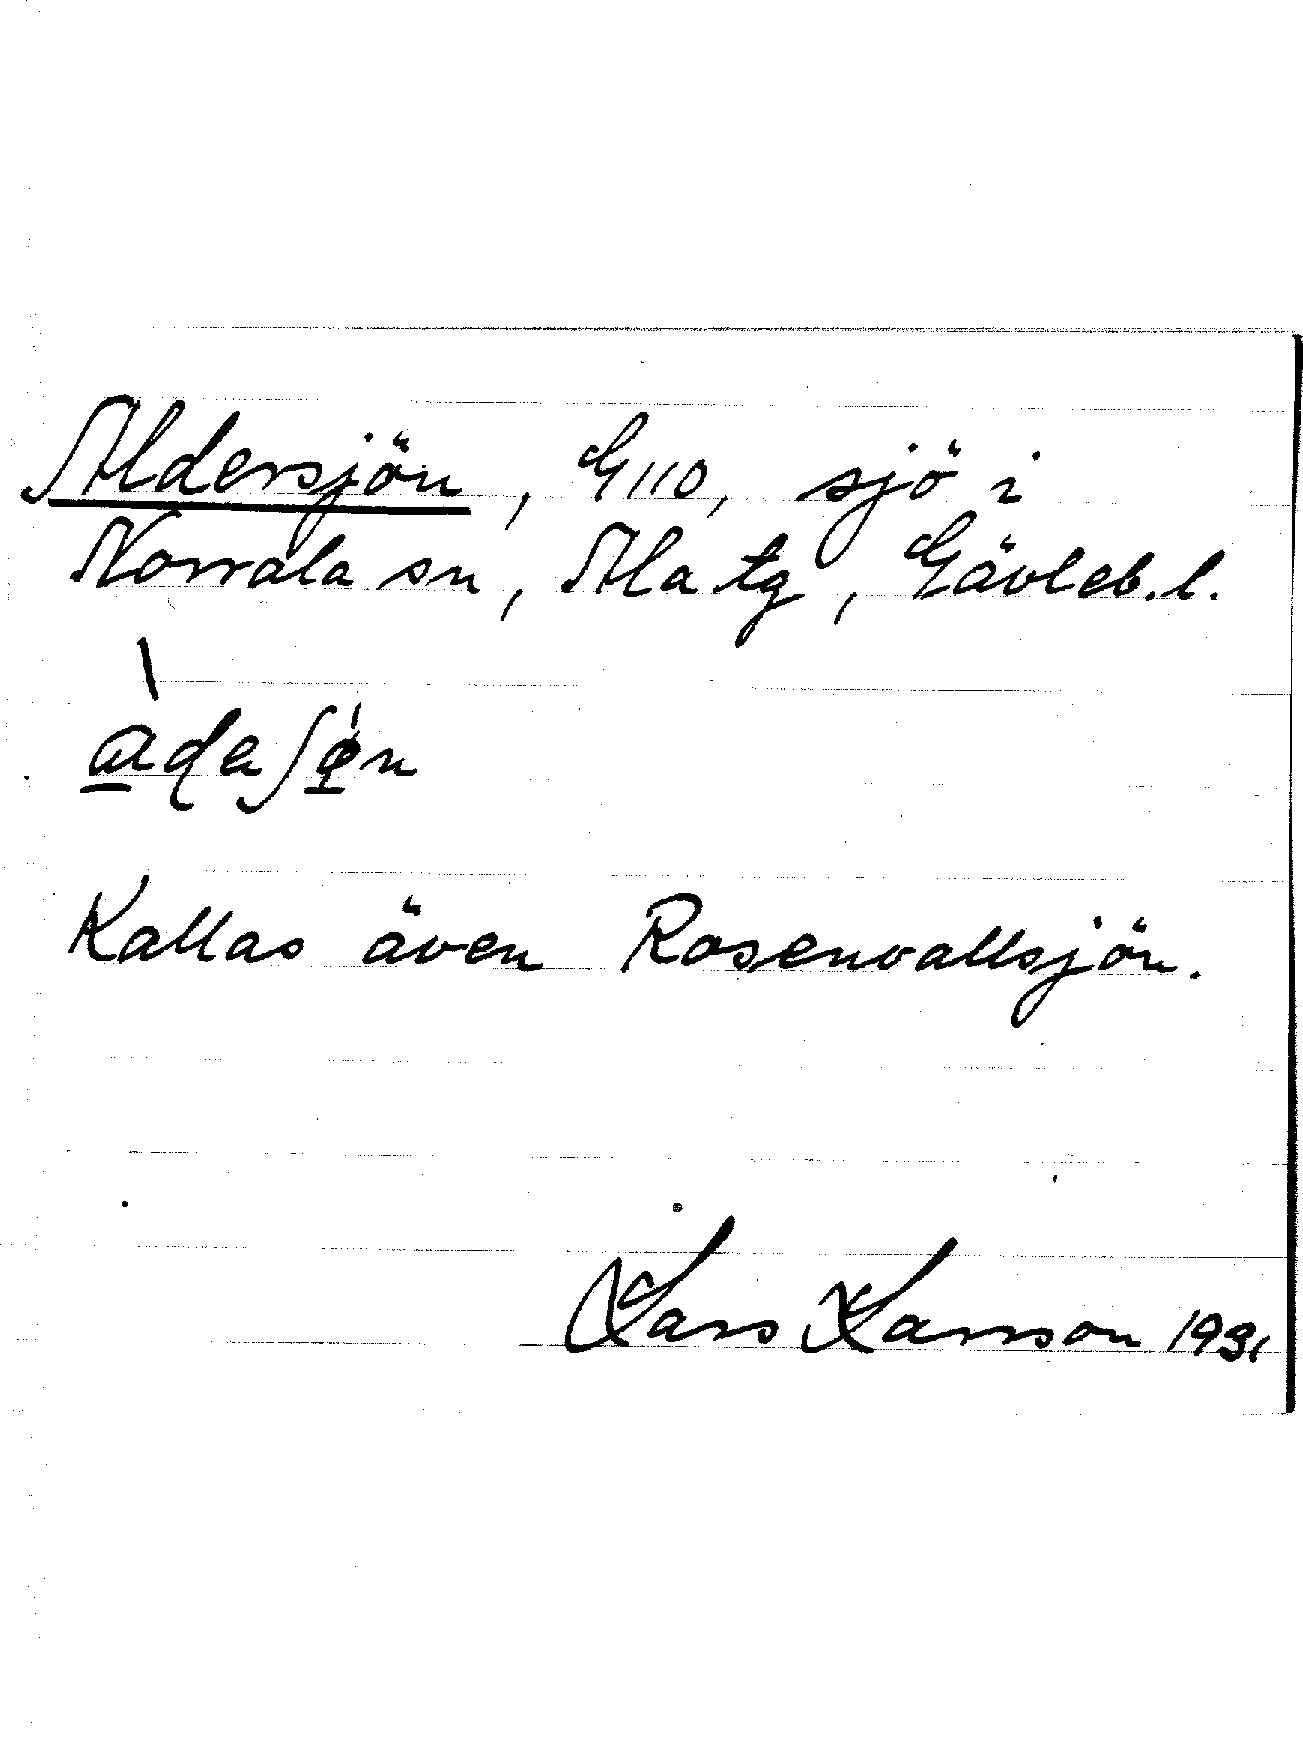 Aldersjön, G110, sjö i
Norrala sn, Ala tg, Gävleb. l.
Kallas även Rosenvallsjön.
Lars Larsson 1931